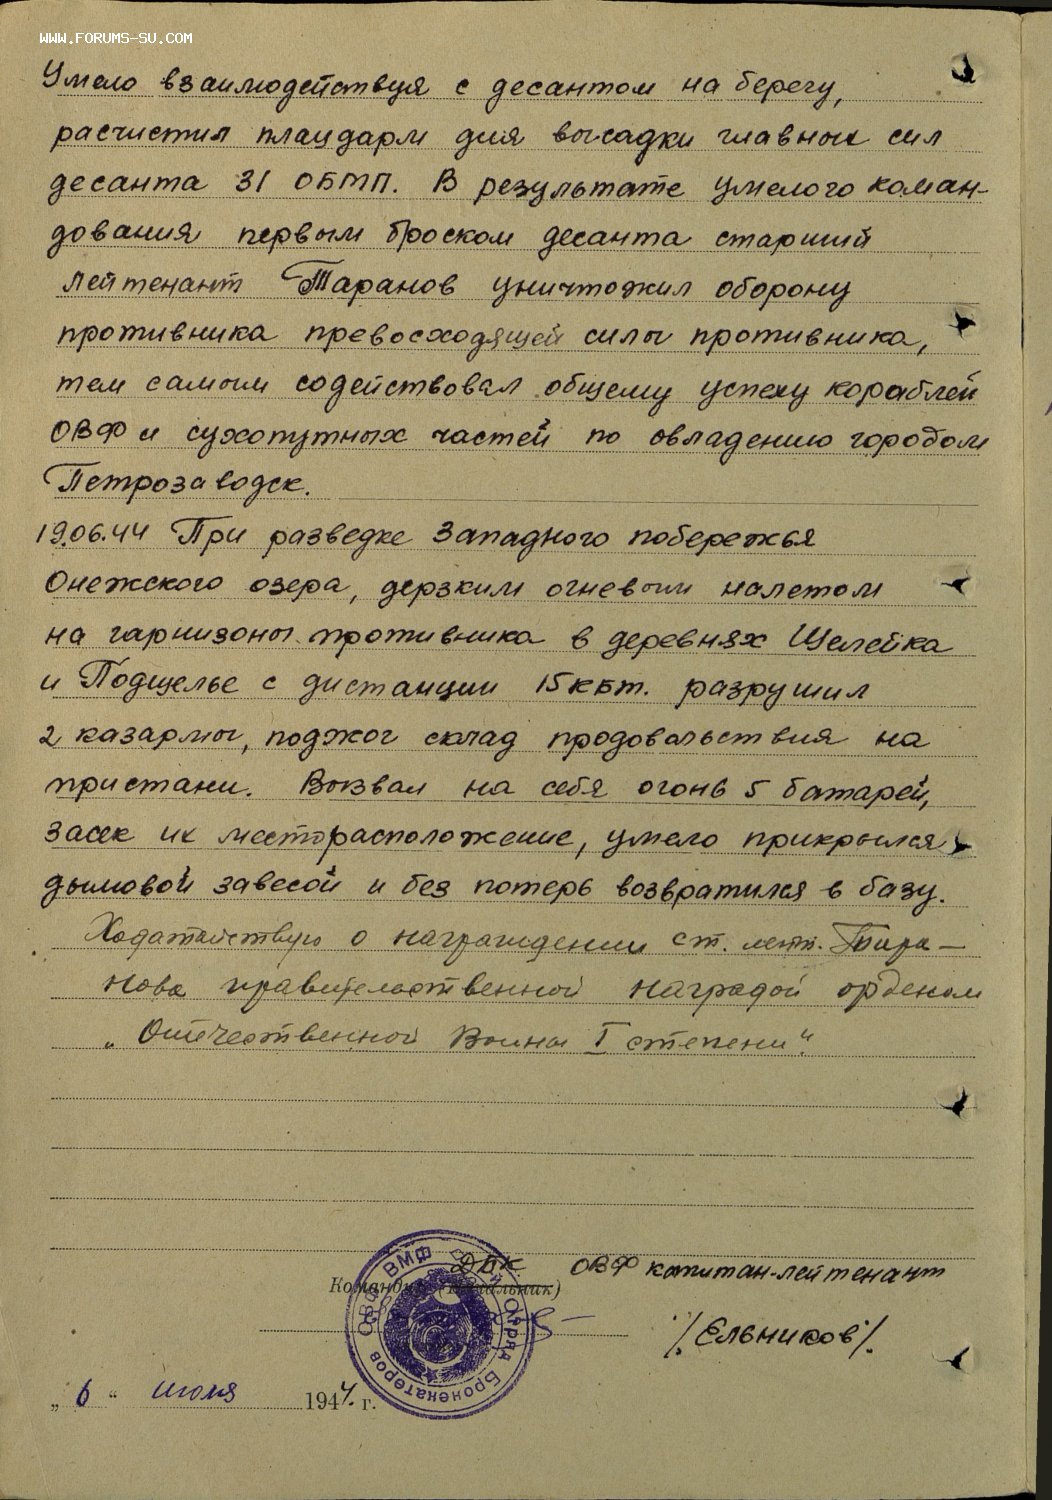 WWW.FORUMS-SU.COM
Умело взаимодействуя с десантом на берегу,
расчистил плацдарм для высадки главных сил
десанта 31 ОБМП. В результате умелого коман-
дования первым броском десанта старший
лейтенант Таранов уничтожил оборону
противника превосходящей силы противника,
тем самым содействовал общему успеху кораблей
ОВФ и сухопутных частей по овладению городом
Петрозаводск.
19.06.44 При разведке Западного побережья
Онежского озера, дерзким огневым налетом
на гарнизоны противника в деревнях Щелейка
и Подщелье с дистанции 15 кбт. разрушил
2 казармы, поджог склад продовольствия на
пристани. Вызвал на себя огонь 5 батарей,
засек их месторасположение, умело прикрылся
дымовой завесой и без потерь возвратился в базу.
Ходатайствую о награждении ст. лейт. Тара-
нова правительственной наградой орденом
„Отечественной Воины I степени".
Командир (Начальник) ДБК ОВФ капитан-лейтенант
/.Ельников/.
ОВФ ВМФ Отряд Бронекатеров
„6" июля 1944 г.